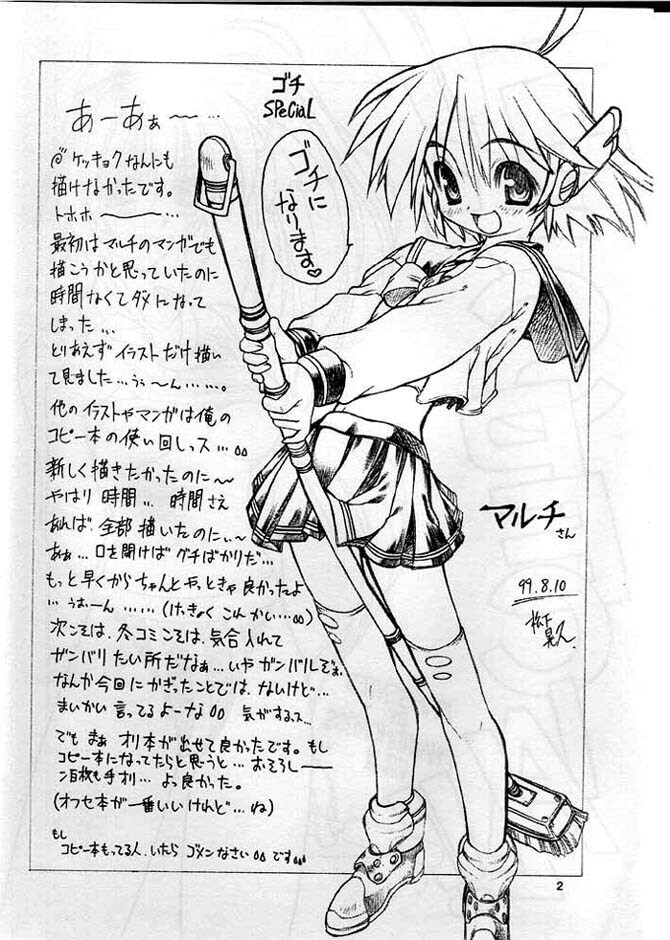 ゴチ
SPeCiaL
ゴチに
なります♡
あーあぁ〜…
ケッキョクなんにも
描けなかったです。
トホホ〜…
最初はマルチのマンガでも
描こうかと思っていたのに
時間なくてダメになって
しまった…
とりあえずイラストだけ描い
て見ました…うぅーん……。
他のイラストやマンガは俺の
コピー本の使い回しっス…
新しく描きたかったのに〜
やはり時間… 時間さえ
あれば、全部描いたのにぃ〜
あぁ…口を開けばグチばかりだ…
もっと早くからちゃんとやっときゃ良かったよ
… うおーん …… (けっきょくこんかい…)
次こそは、冬コミこそは、気合入れて
ガンバリたい所だなぁ…いやガンバルぞぉ、
なんか今回にかぎったことでは、ないけど…
まいかい言ってるよーな 気がするっス…
でもまぁオリ本が出せて良かったです。もし
コピー本になってたらと思うと…おそろしー
百枚も手オリ… よっ良かった。
(オフセ本が一番いいけれど…ね)
もし
コピー本もってる人、いたら ゴメンなさい です
マルチ
さん
99.8.10
2